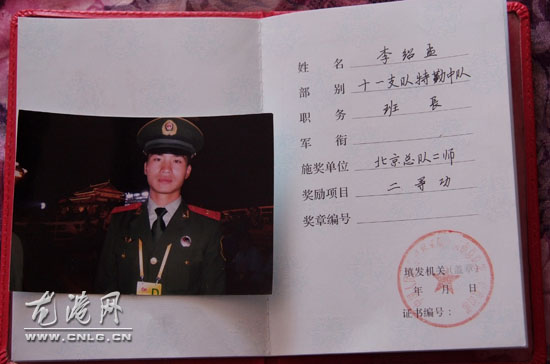 姓 名 李绍孟
部 别 十一支队特勤中队
职 务 班长
军 衔
施奖单位 北京总队二师
奖励项目 二等功
奖章编号
填发机关
年 月 日
证书编号：
龙港网
WWW.CNLG.CN